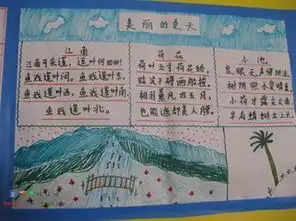 美丽的夏天
江南
江南可采莲,莲叶何田田!
鱼戏莲叶间,鱼戏莲叶东,
鱼戏莲叶西,鱼戏莲叶南,
鱼戏莲叶北。
荷花
荷叶五寸荷花娇,
贴波不碍画船摇,
相到薰风四五月,
也能遮却美人腰。
小池
泉眼无声惜细流
树阴照水爱晴柔
小荷才露尖尖角
早有蜻蜓立上头